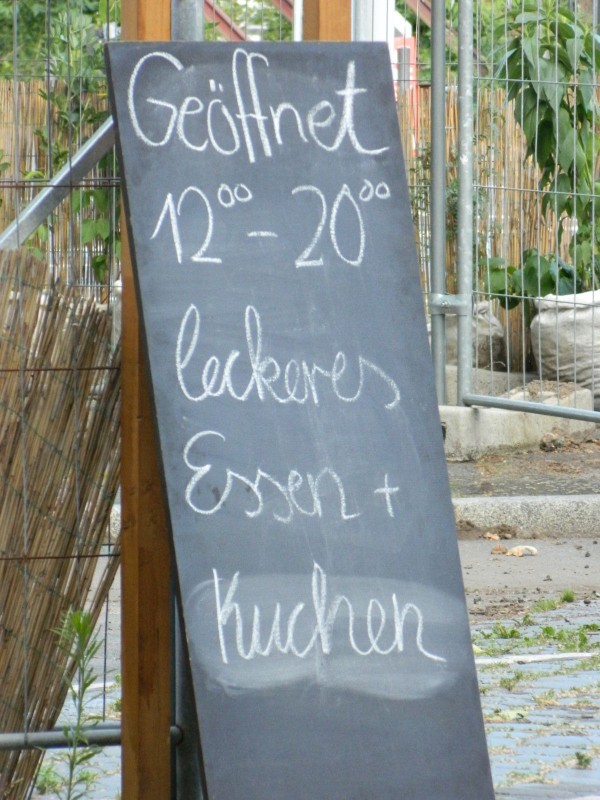 Geöffnet
12⁰⁰ - 20⁰⁰
leckeres
Essen +
Kuchen